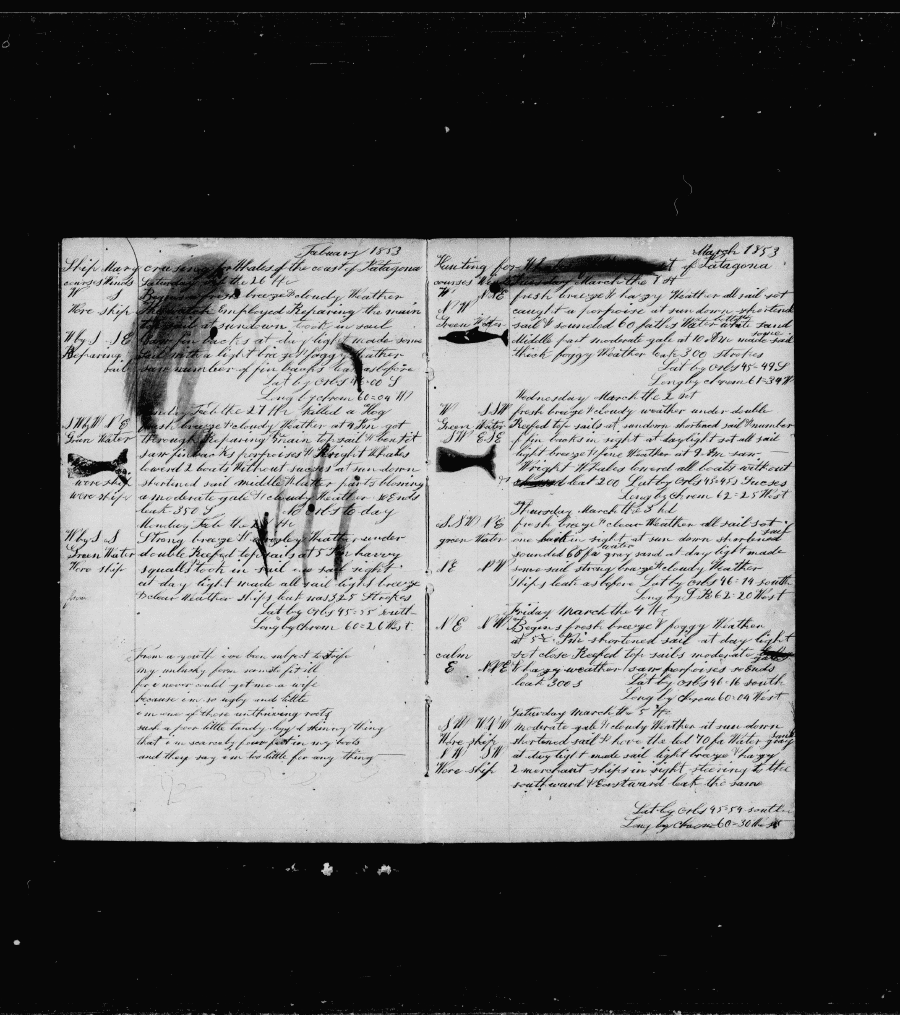 February 1853
Ship Mary cruising for Whales of the coast of Patagona
courses Winds Saturday Feb the 26 th
W S Begins with fresh breeze & cloudy Weather
Wore ship The watch Employed Repareing the main
top sail at sundown took in sail
W by S S E Saw fin backs at day light made some
Repareing sail with a light breeze & foggy Weather
sail saw number of fin backs leak as before
Lat by Obs 00 S
Long by chrom 60=04 W
Sunday Feb the 27 th killed a Hog
S W by W N E fresh breeze & cloudy Weather at 4 Pm got
Green Water through Repareing main top sail & bent it
saw fin backs porpoises & Wright Whales
lowerd 2 boats Without sucses at sun down
wore ship shortened sail middle & latter parts blowing
wore ship a moderate gale & cloudy Weather so Ends
leak 350 S No Obs to day
Monday Feb the th
W by S S Strong breeze & Weather under
Green Water double Reefed top sails at 5 Pm havvy
Wore ship squalls took in sail no sail in sight
at day light made all sail light breeze
& clear Weather ships leak was 325 Strokes
Lat by Obs 45=55 south
Long by chrom 60=26 West
from a youth i've been subject to strife
my unlucky form
for i never could get me a wife
because i'm so ugly and little
i'm one of those unthriving roots
such a poor little bandy legg'd skinny thing
that i'm scarcely four feet in my boots
and they say i'm too little for any thing
March 1853
Hunting for Whales of Patagona
courses Tuesday March the 1 st
W N E fresh breeze & hazy Weather all sail set
N W caught a porpoise at sundown shortened
Green Water sail & sounded 60 faths Water sand
middle part moderate gale at 10 Am made some sail
thick foggy Weather leak 300 strokes
Lat by Obs 45=49 S
Long by chrom 61=34 W
Wednesday March the 2 set
W S S W fresh breeze & cloudy weather under double
Green Water Reefed top sails at sundown shortened sail & number
S W E S E of fin backs in sight at daylight set all sail
light breeze & fine Weather at 9 Am saw
Wright Whales lowerd all boats without
leak 200 Lat by Obs 45=45 S sucses
Long by chrom 62=25 West
Thursday March the 3 hd
S S W N E fresh breeze & clear Weather all sail set
green Water one in sight at sun down shortened sail
sounded 68 fa water gray sand at day light made
N E N W some sail strong breeze & cloudy Weather
ships leak as before Lat by Obs 46=14 south
Long by D R 62=20 West
Friday March the 4 th
N E N W Begins fresh breeze & foggy Weather
at 5 Pm shortened sail at day light
calm set close Reefed top sails moderate gale
E N N E & hazy weather saw porpoises so Ends
leak 300 S Lat by Obs 46=16 south
Long by chrom 60=04 West
Saturday March the 5 th
S W W N W moderate gale & cloudy Weather at sun down
Wore ship shortened sail & hove the led 70 fa Water gray sand
N W S W at day light made sail light breeze & hazy
Wore ship 2 merchant ships in sight steering to the
southward & Eastward leak the same
Lat by Obs 45=54 south
Long by chrom 60=30 West